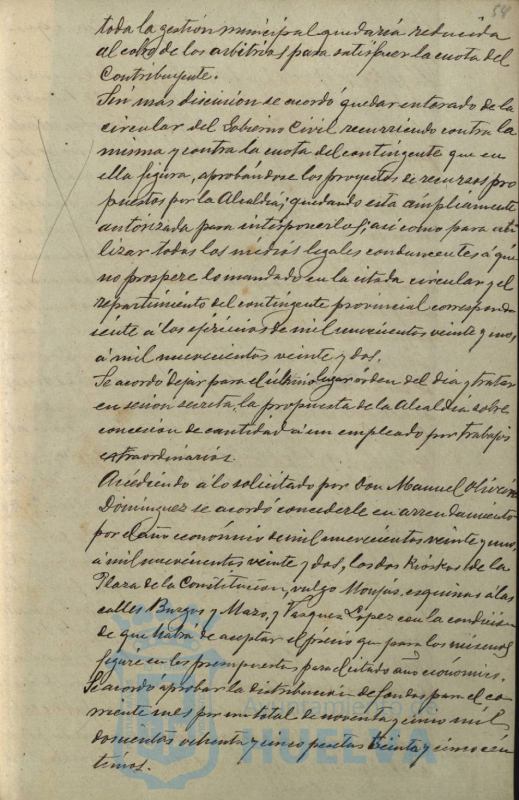 58
toda la gestión municipal quedaría reducida
al cobro de los arbitrios para satisfacer la cuota del
Contribuyente.
Sin más discusión se acordó quedar enterado de la
circular del Gobierno Civil recurriendo contra la
misma y contra la cuota del contingente que en
ella figura, aprobándose los proyectos de recursos pro
puestos por la Alcaldía; quedando esta ampliamente
autorizada para interponerlos; así como para uti
lizar todos los medios legales conducentes á que
no prospere lo mandado en la citada circular y el
repartimiento del contingente provincial correspon
diente á los ejercicios de mil novecientos veinte y uno,
á mil novecientos veinte y dos.
Se acordó dejar para el último lugar orden del dia y tratar
en sesión secreta, la propuesta de la Alcaldía sobre
concesión de cantidad á un empleado por trabajos
extraordinarios.
Accediendo á lo solicitado por Don Manuel Oliveira
Dominguez se acordó concederle en arrendamiento
por el año económico de mil novecientos veinte y uno,
á mil novecientos veinte y dos, los dos Kioskos de la
Plaza de la Constitucion, vulgo Monjas, esquinas á las
calles Burgos y Mazo, y Vazquez Lopez con la condición
de que habrá de aceptar el precio que para los mismos
figure en los presupuestos para el citado año económico.
Se acordó aprobar la distribución de fondos para el co
rriente mes por un total de noventa y cinco mil
doscientas ochenta y cinco pesetas treinta y cinco cén
timos.
Ayuntamiento de
HUELVA